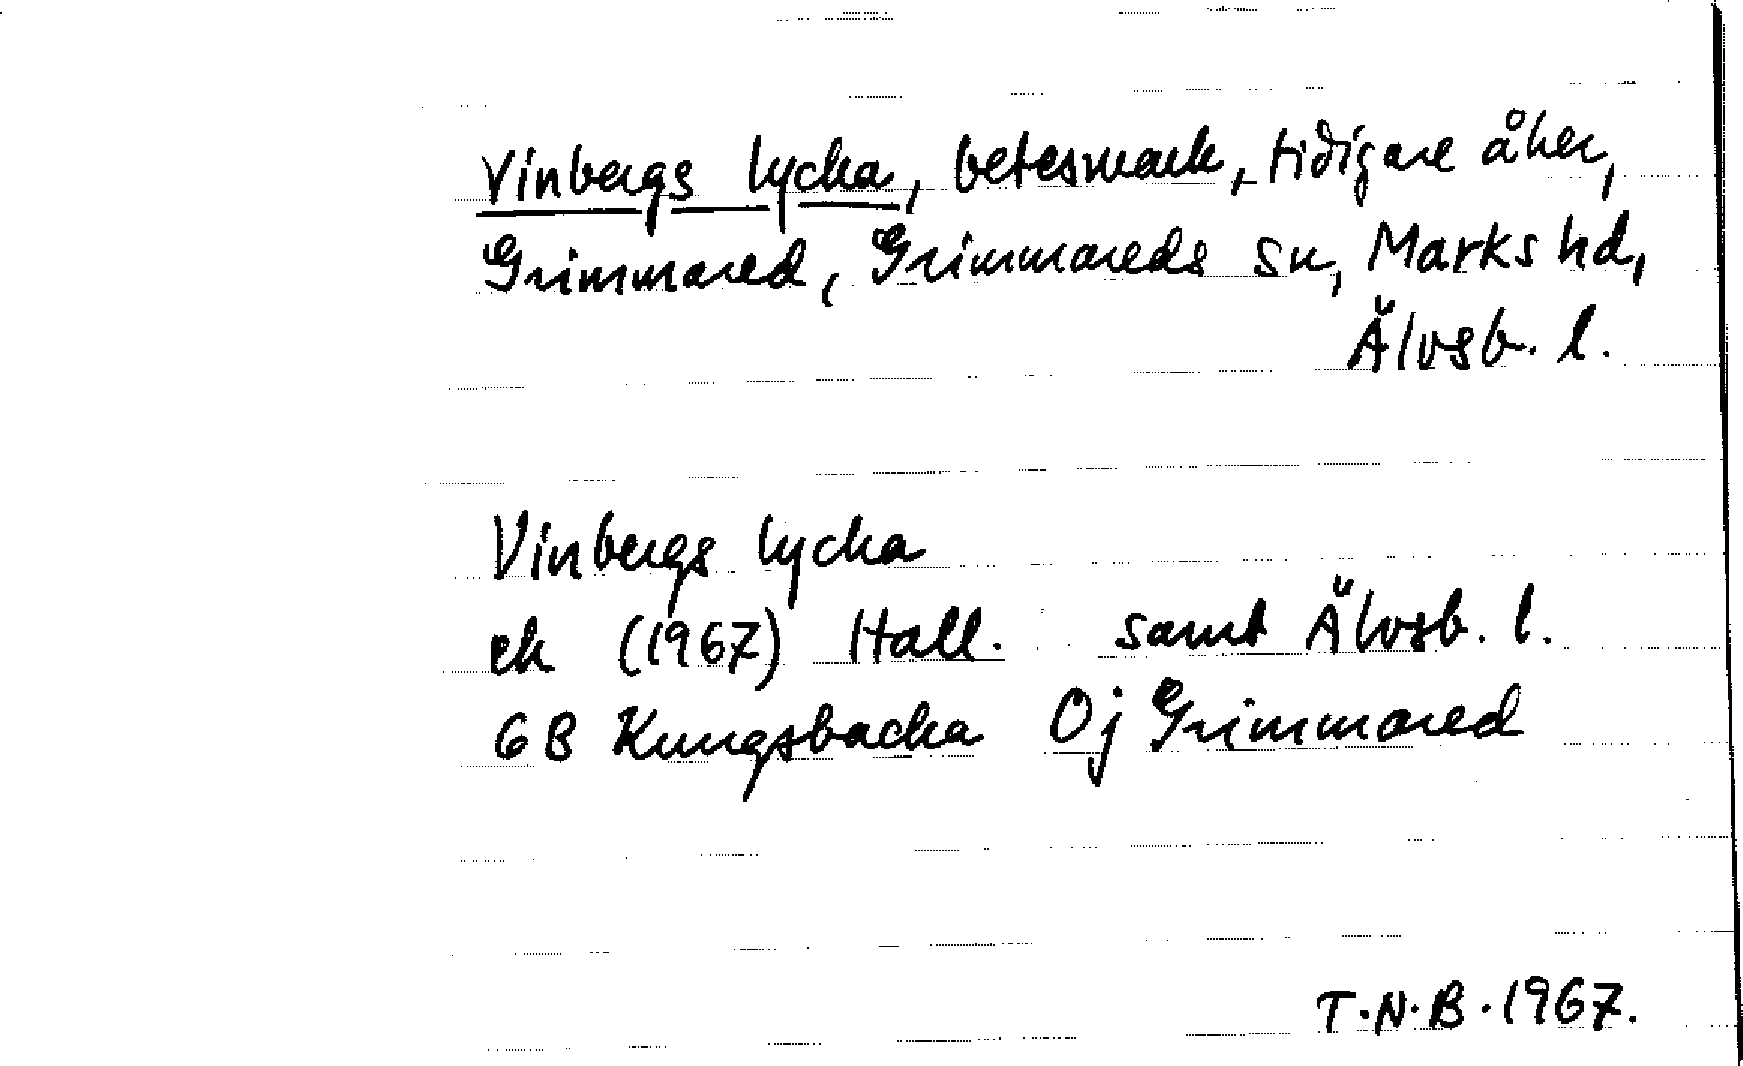 Vinbergs lycka, betesmark, tidigare åker,
Grimmared, Grimmareds sn, Marks hd,
Älvsb. l.
Vinbergs lycka
ek (1967) Hall. samt Älvsb. l.
6B Kungsbacka Oj Grimmared
T.N.B. 1967.